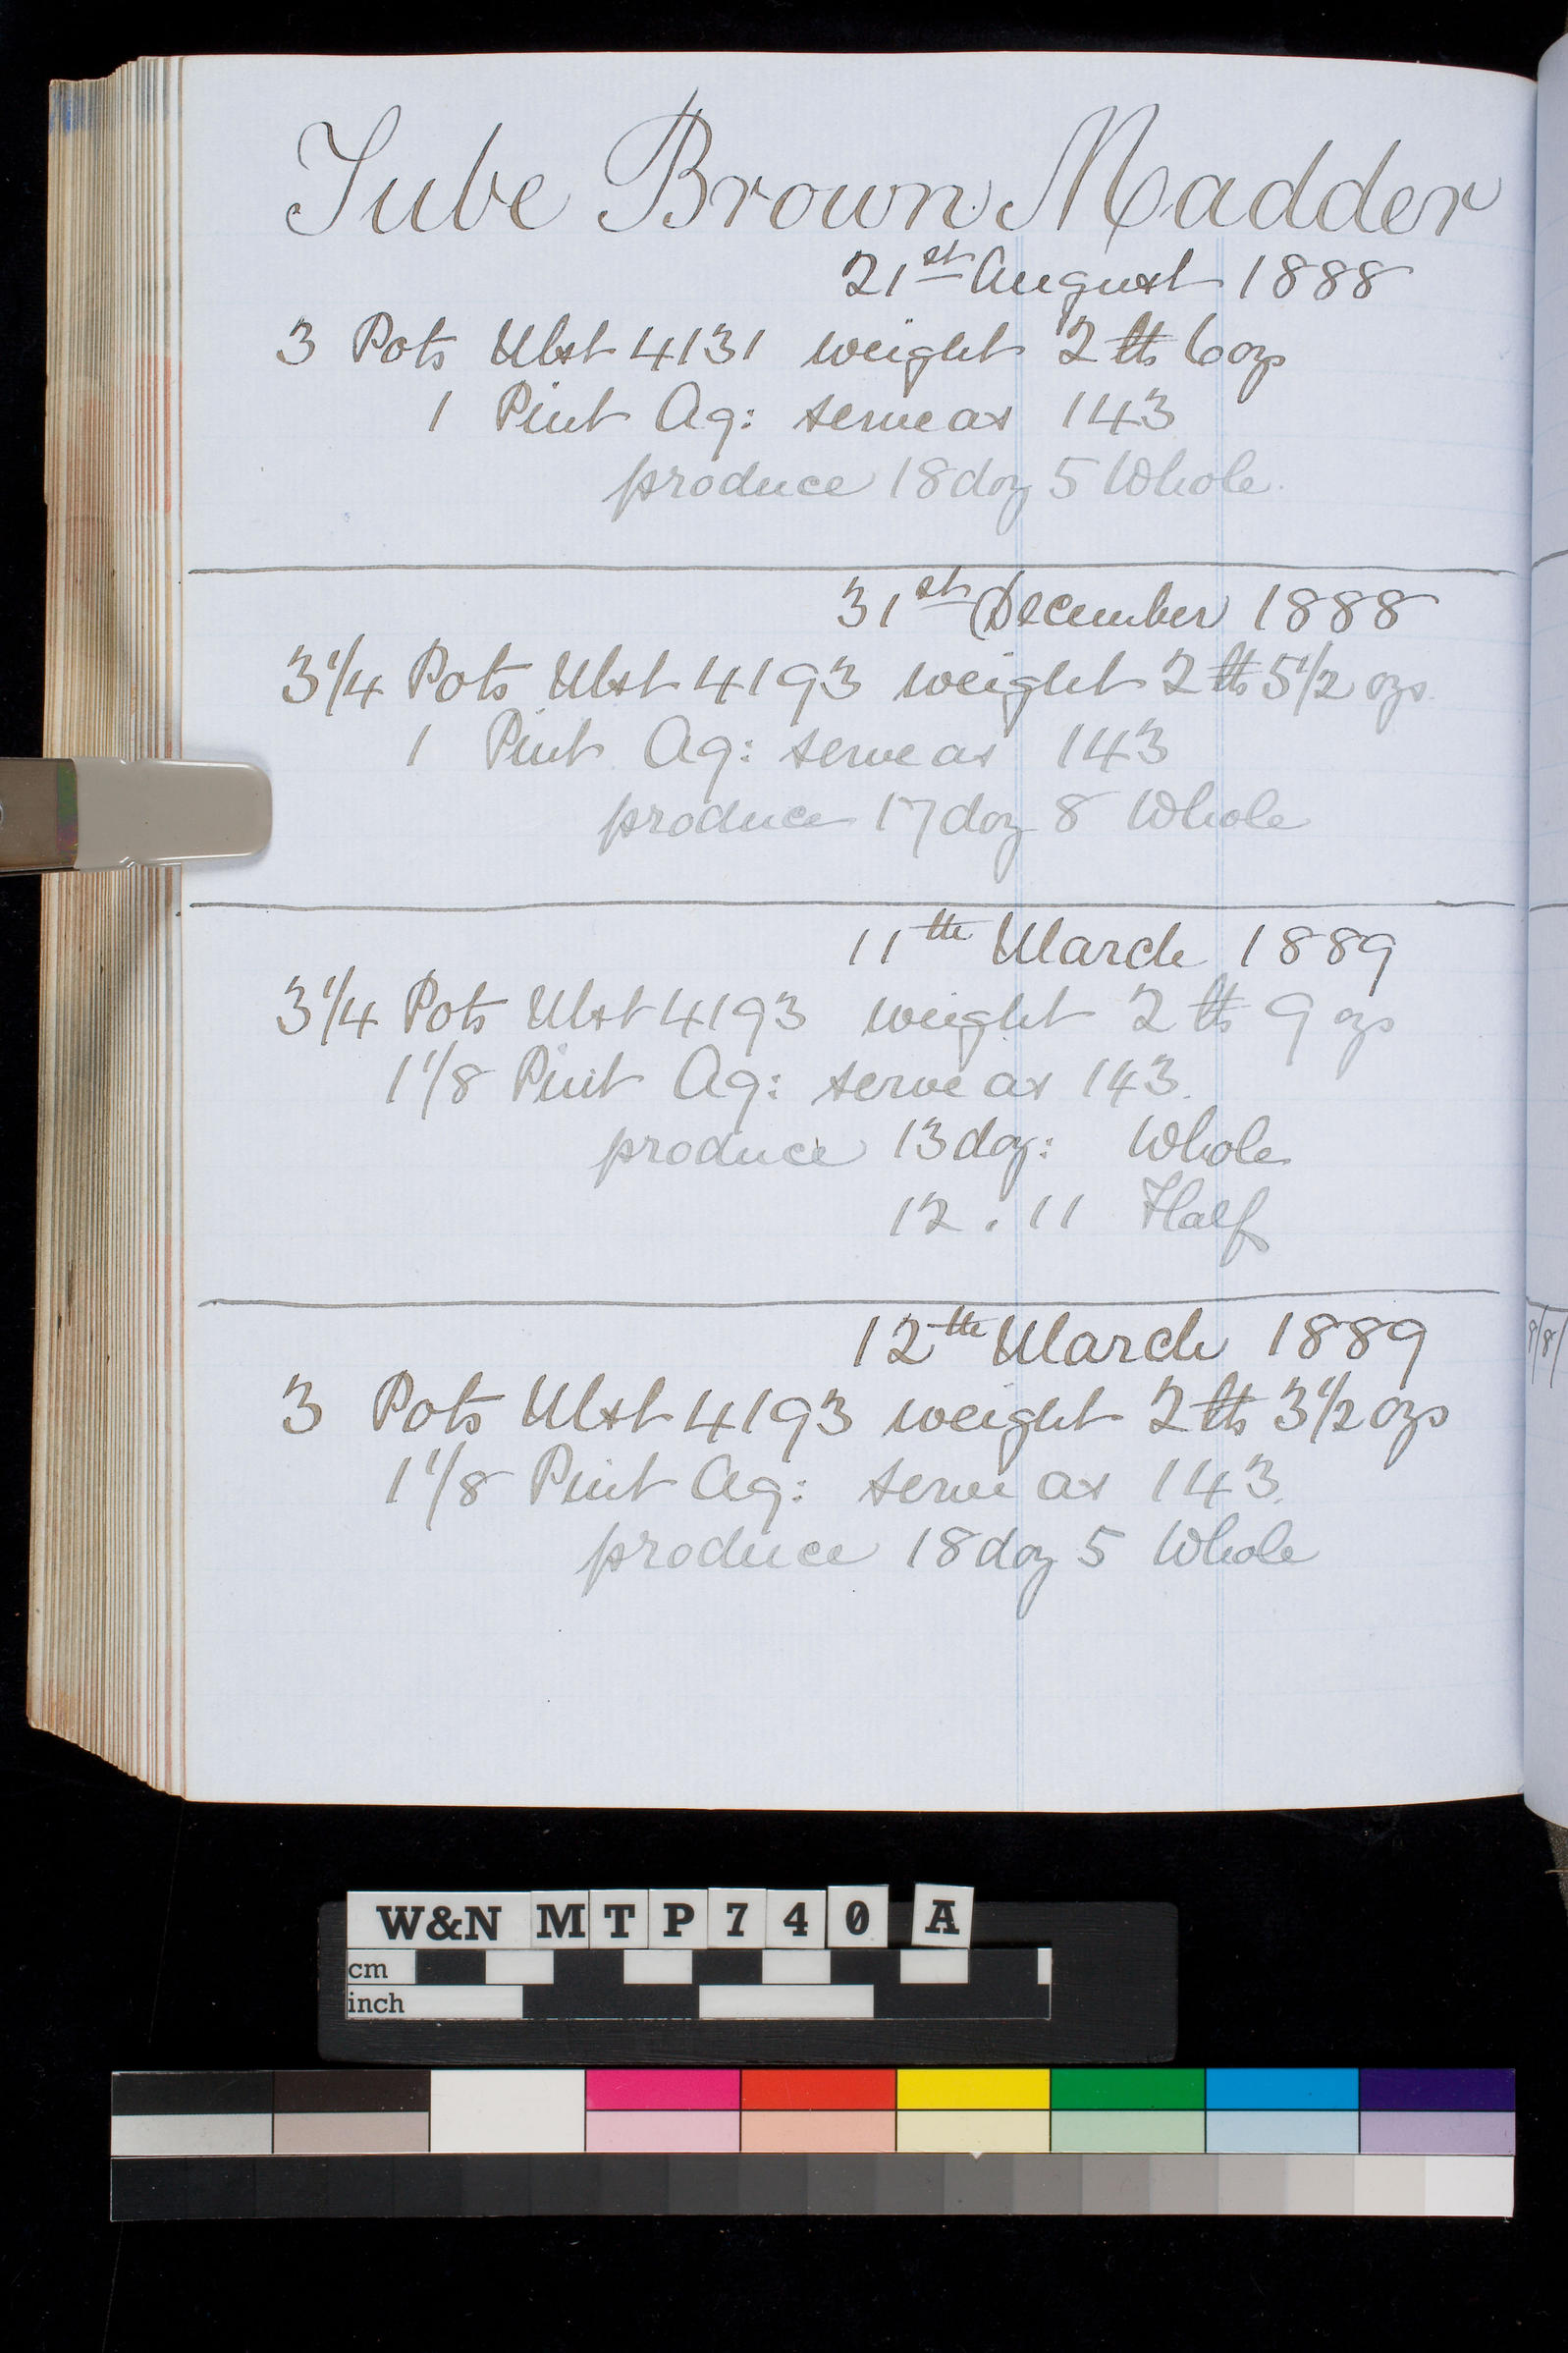 Tube Brown Madder
21st August 1888
3 Pots Ulst 4131 weight 2 lb 6 ozs
1 Pint Aq: serve as 143
produce 18 doz 5 Whole.
31st December 1888
3 1/4 Pots Ulst 4193 weight 2 lb 5 1/2 ozs
1 Pint Aq: serve as 143
produce 17 doz 8 Whole
11th March 1889
3 1/4 Pots Ulst 4193 weight 2 lb 9 ozs
1 1/8 Pint Aq: serve as 143.
produce 13 doz: Whole
12 . 11 Half
12th March 1889
3 Pots Ulst 4193 weight 2 lb 3 1/2 ozs
1 1/8 Pint Aq: serve as 143.
produce 18 doz 5 Whole
W&N MTP740 A
cm
inch